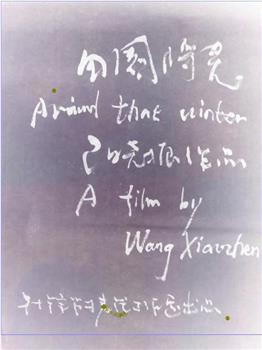 田園將芜
Around that winter
王晓振作品
A film by
Wang Xiaozhen
工作室出品